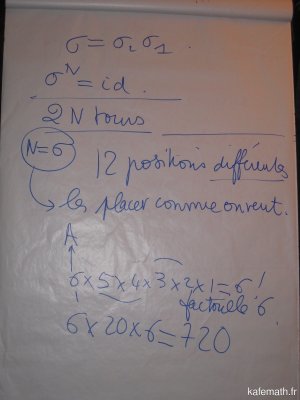 σ = σ₂ σ₁ .
σᴺ = id .
2 N tours
N=6
12 positions différentes
les placer comme on veut.
A
6×5×4×3×2×1=6!
factorielle 6.
6×20×6=720
kafemath.fr